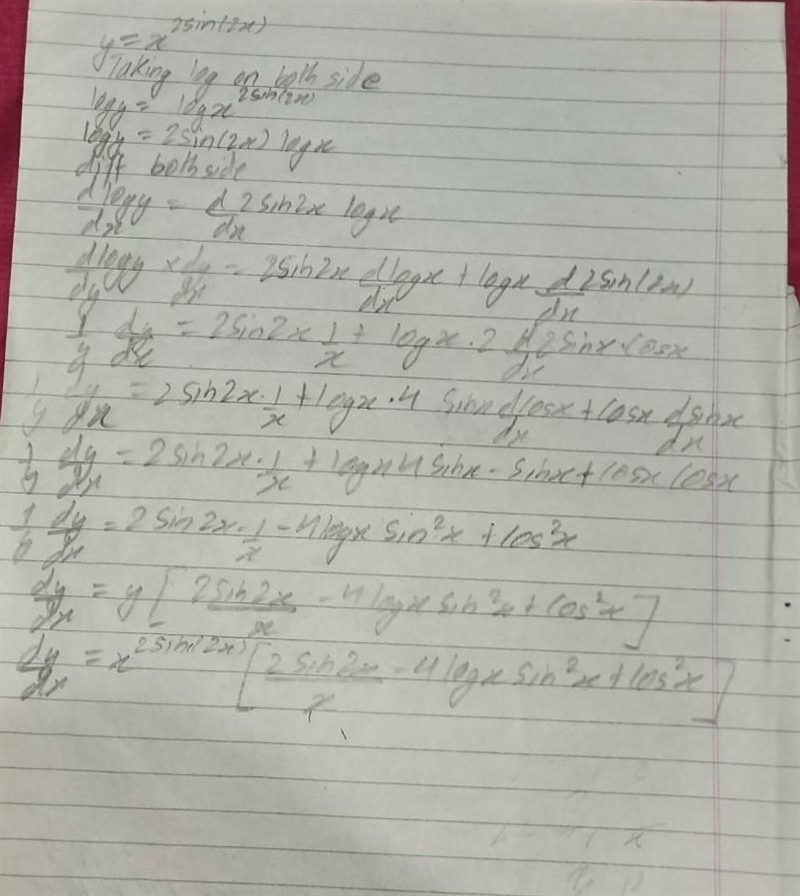 y = x^2sin(2x)
Taking log on both side
logy = logx^2sin(2x)
logy = 2sin(2x) logx
diff both side
d/dx logy = d/dx 2sin2x logx
dlogy/dy × dy/dx = 2sin2x dlogx/dx + logx d/dx 2sin(2x)
1/y dy/dx = 2sin2x 1/x + logx · 2 d/dx 2sinx · cosx
1/y dy/dx = 2sin2x · 1/x + logx · 4 sinx dcosx/dx + cosx dsinx/dx
1/y dy/dx = 2sin2x · 1/x + logx 4sinx - sinx + cosx cosx
1/y dy/dx = 2sin2x · 1/x - 4logx sin²x + cos²x
dy/dx = y [2sin2x/x - 4logx sin²x + cos²x]
dy/dx = x^2sin(2x) [2sin2x/x - 4logx sin²x + cos²x]